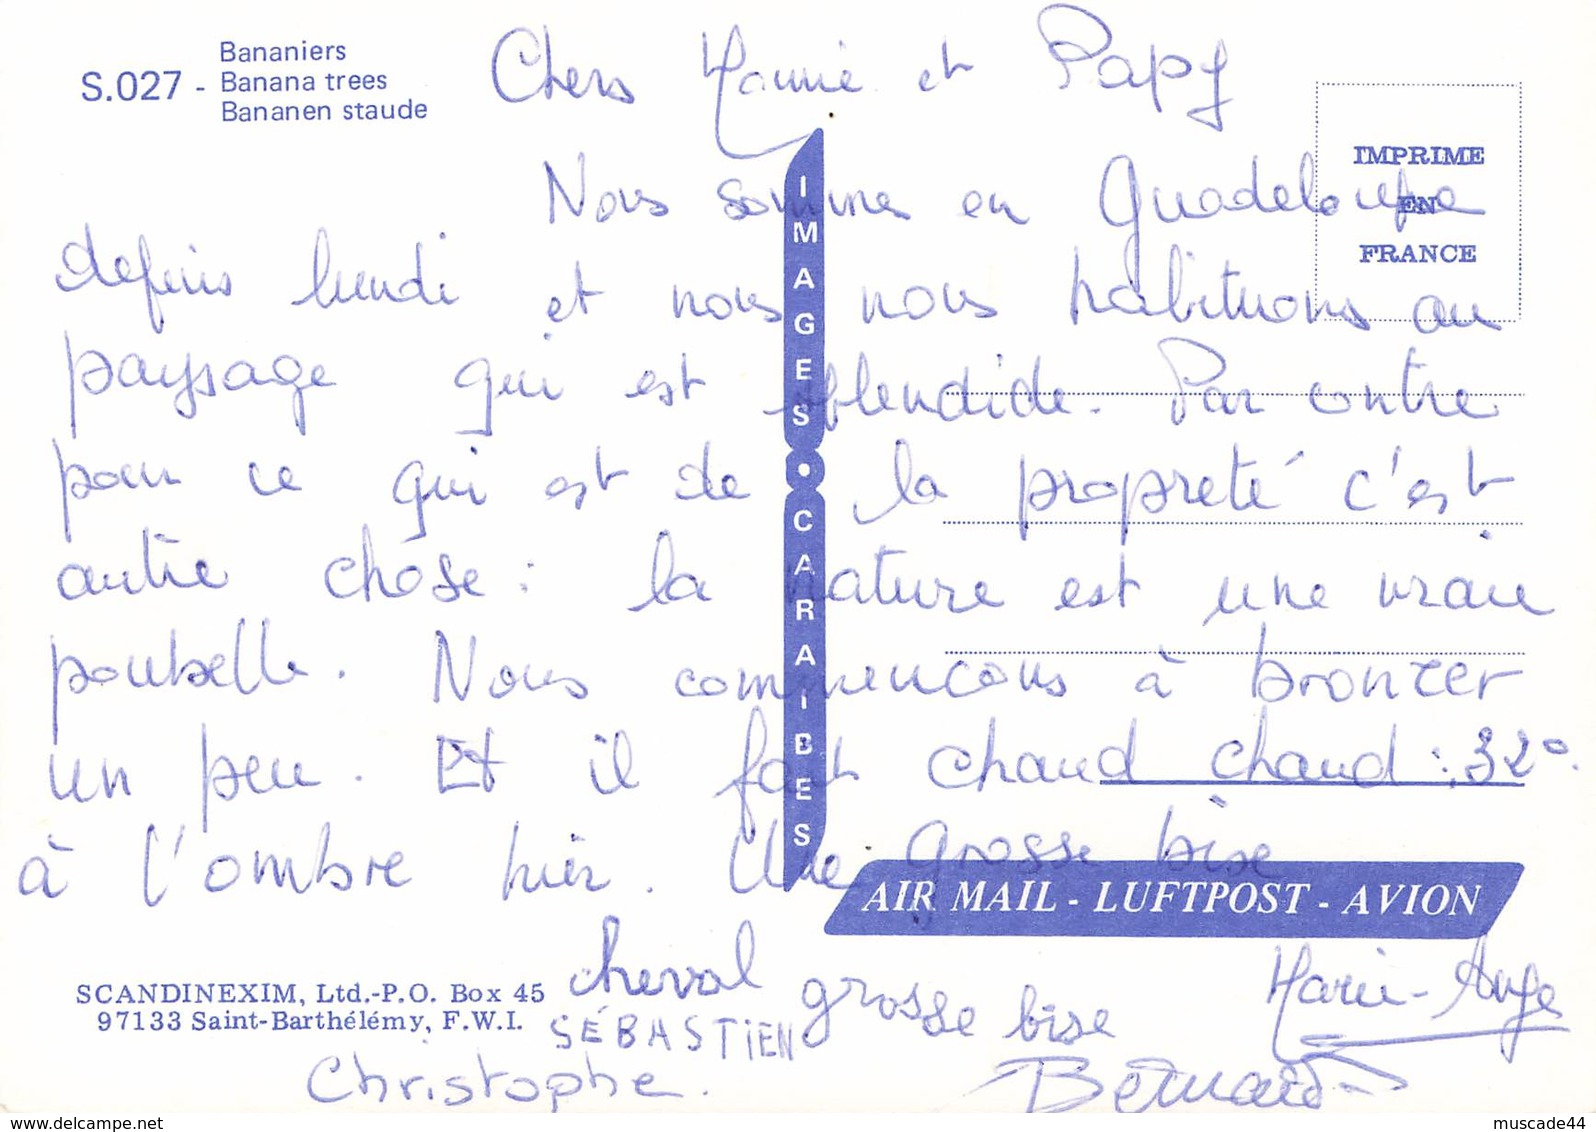 S.027 - Bananiers
Banana trees
Bananen staude
Chers Mamie et Papy
IMPRIME
EN
FRANCE
Nous sommes en Guadeloupe
depuis lundi et nous nous habituons au
paysage qui est splendide. Par contre
pour ce qui est de la propreté c'est
autre chose : la nature est une vraie
poubelle. Nous commencons à bronzer
un peu. Et il fait chaud chaud : 32°
à l'ombre hier. Une grosse bise
IMAGES CARAIBES
AIR MAIL - LUFTPOST - AVION
cheval grosse bise Marie-Ange
SCANDINEXIM, Ltd.-P.O. Box 45
97133 Saint-Barthélémy, F.W.I.
SÉBASTIEN
Christophe. Bernard
delcampe.net
muscade44